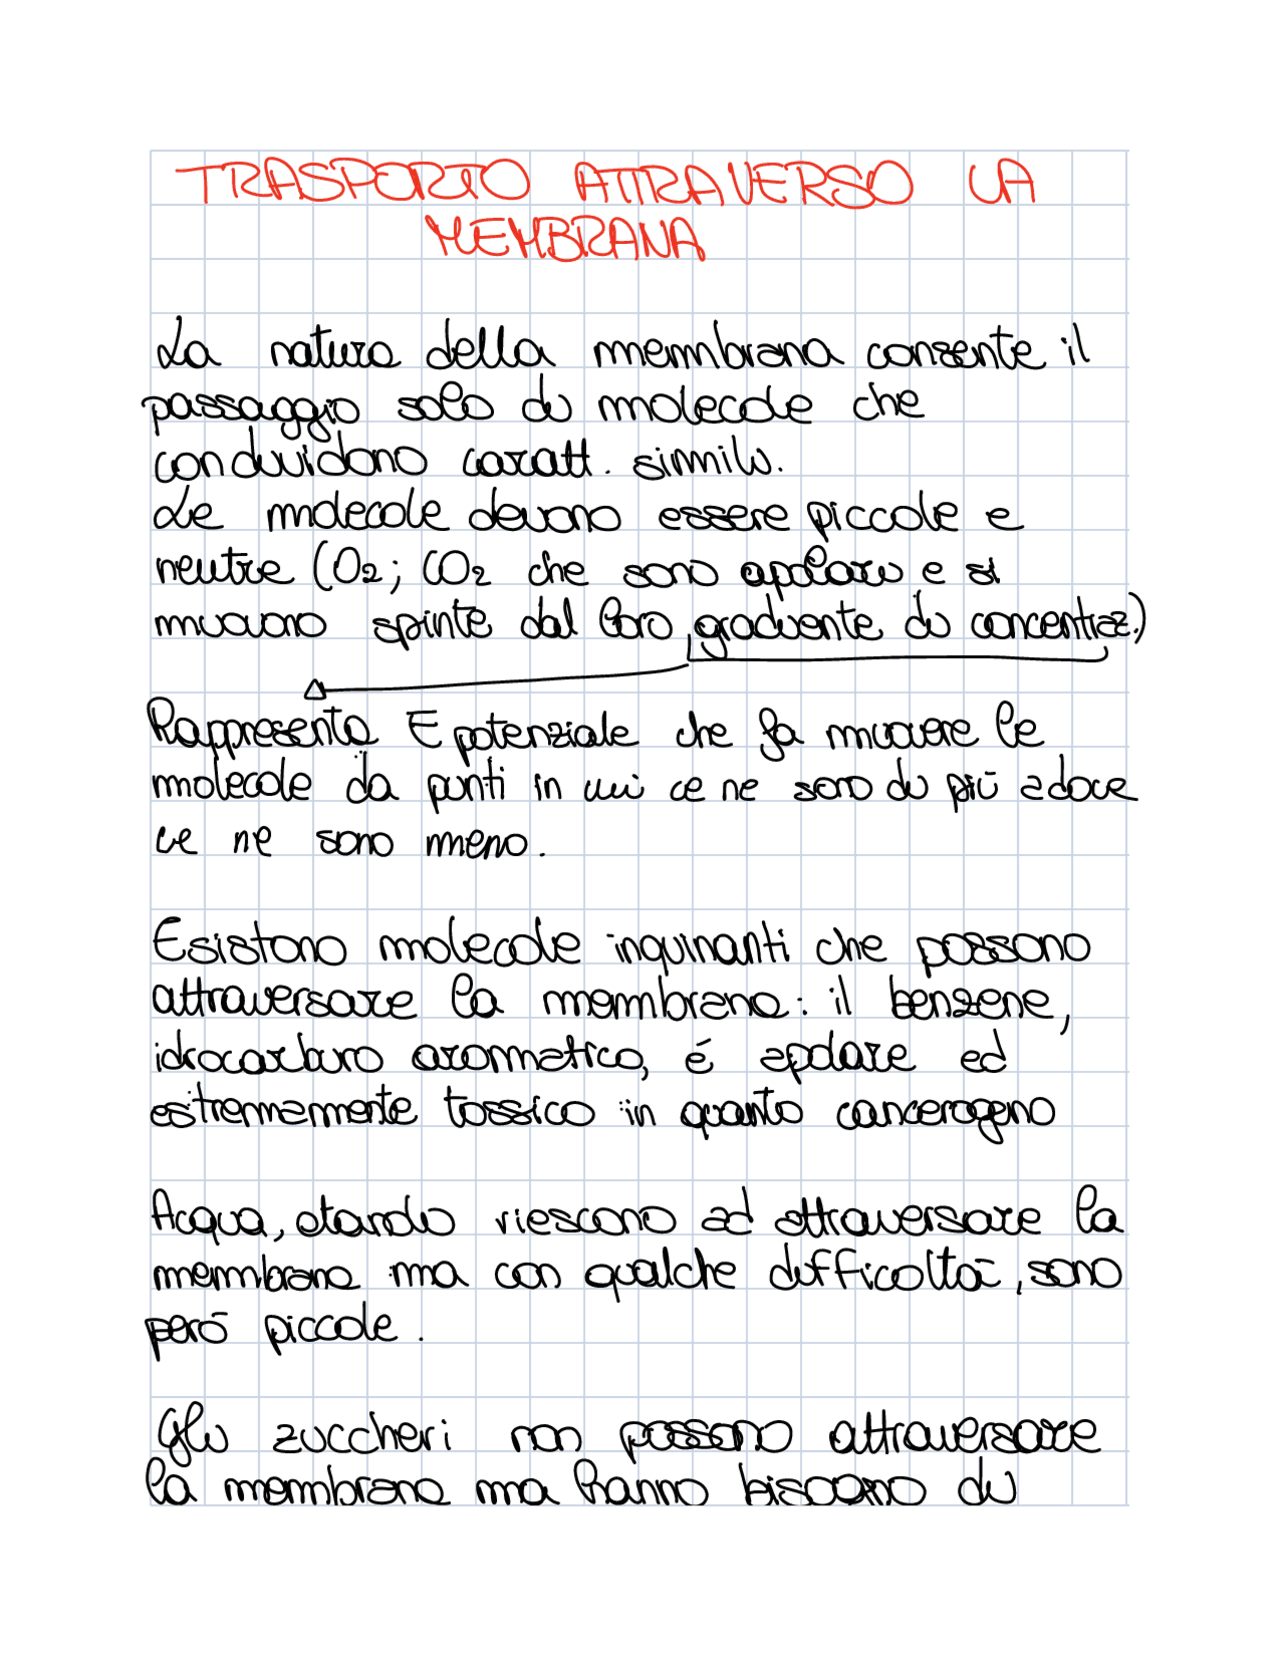 TRASPORTO ATTRAVERSO LA
MEMBRANA
La natura della membrana consente il
passaggio solo di molecole che
condividono caratt. simili.
Le molecole devono essere piccole e
neutre (O2; CO2 che sono apolari e si
muovono spinte dal loro gradiente di concentraz.)
Rappresenta E potenziale che fa muovere le
molecole da punti in cui ce ne sono di più a dove
ce ne sono meno.
Esistono molecole inquinanti che possono
attraversare la membrana: il benzene,
idrocarburo aromatico, é apolare ed
estremamente tossico in quanto cancerogeno
Acqua, etanolo riescono ad attraversare la
membrana ma con qualche difficoltà, sono
però piccole.
Gli zuccheri non possono attraversare
la membrana ma hanno bisogno di